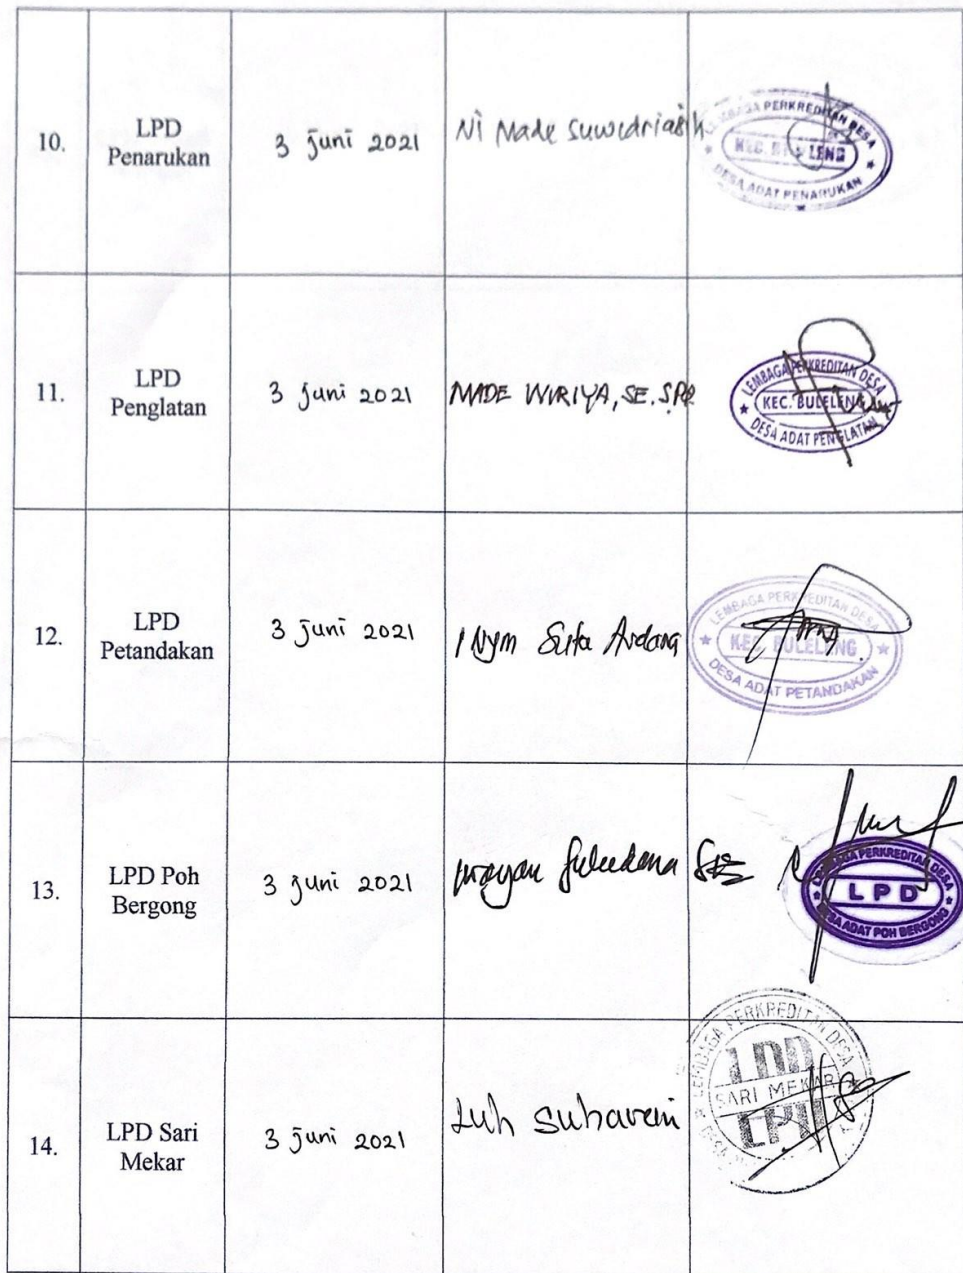 10.
LPD
Penarukan
3 Juni 2021
Ni Made Suwedriasih
LEMBAGA PERKREDITAN DESA
KEC. BULELENG
DESA ADAT PENARUKAN
11.
LPD
Penglatan
3 Juni 2021
MADE WIRIYA, SE.
LEMBAGA PERKREDITAN DESA
KEC. BULELENG
DESA ADAT PENGLATAN
12.
LPD
Petandakan
3 Juni 2021
I Nym Suta Ardana
LEMBAGA PERKREDITAN DESA
KEC. BULELENG
DESA ADAT PETANDAKAN
13.
LPD Poh
Bergong
3 Juni 2021
Wayan
LEMBAGA PERKREDITAN DESA
LPD
DESA ADAT POH BERGONG
14.
LPD Sari
Mekar
3 Juni 2021
Luh
LEMBAGA PERKREDITAN DESA
LPD
SARI MEKAR
LPD